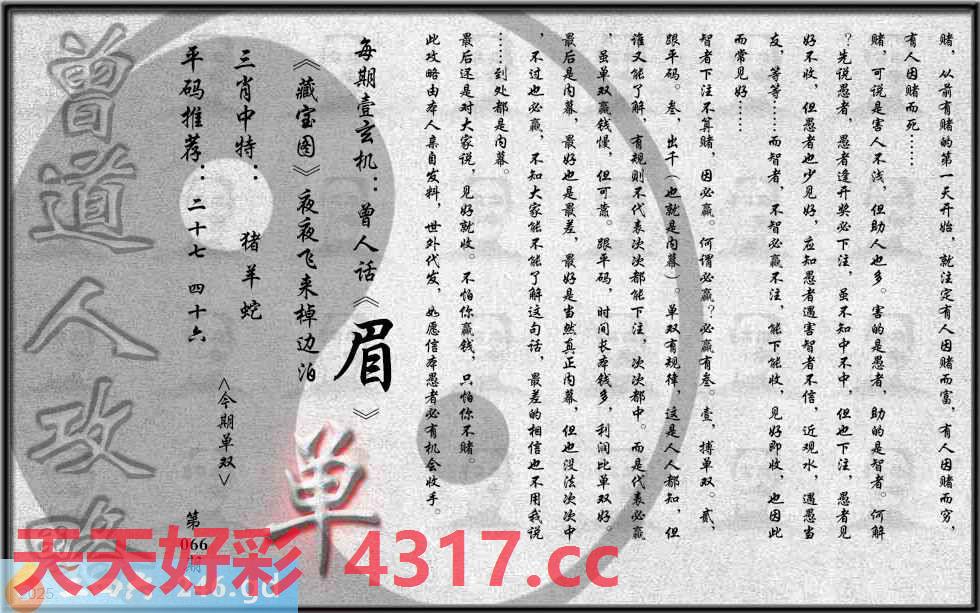 赌，从前有赌的第一天开始，就注定有人因赌而富，有人因赌而穷，
有人因赌而死……
赌，可说是害人不浅，但助人也多。害的是愚者，助的是智者。何解
？先说愚者，愚者逢开奖必下注，虽不知中不中，但也下注，愚者见
好不收，但愚者也少见好，应知愚者遇害智者不信，近观水，遇愚当
友，等等……而智者，不智必赢不注，能下能收，见好即收，也因此
而常见好……
智者下注不算赌，因必赢。何谓必赢？必赢有叁。壹，搏单双。贰，
跟平码。叁，出千（也就是内幕）。单双有规律，这是人人都知，但
谁又能了解，有规则不代表次次都能下注，次次都中。而是代表必赢
，虽单双赢钱慢，但可靠。跟平码，时间长本钱多，利润比单双好。
最后是内幕，最好也是最差，最好是当然真正内幕，但也没法次次中
，不过也必赢，不知大家能不能了解这句话，最差的相信也不用我说
……到处都是内幕。
最后还是对大家说，见好就收。不怕你赢钱，只怕你不赌。
此攻略由本人亲自发料，世外代发，如愿信本愚者必有机会收手。
每期壹玄机：曾人话《眉》
《藏宝图》夜夜飞来棹边泊
三肖中特：猪羊蛇
平码推荐：二十七 四十六
<今期单双>
单
第066期
曾道人攻略
天天好彩 4317.cc
246.gd
2025